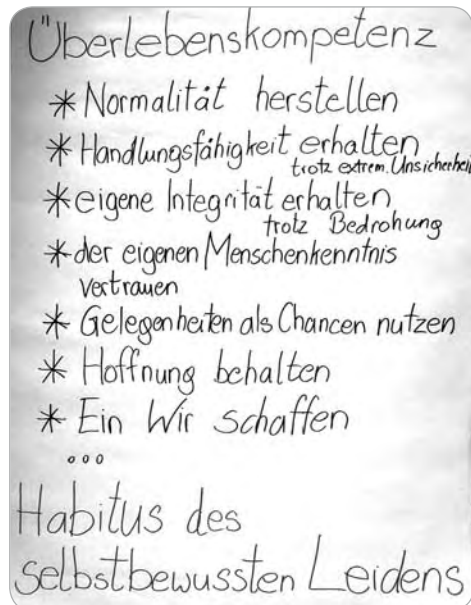 Überlebenskompetenz
* Normalität herstellen
* Handlungsfähigkeit erhalten
trotz extrem. Unsicherheit
* eigene Integrität erhalten
trotz Bedrohung
* der eigenen Menschenkenntnis
vertrauen
* Gelegenheiten als Chancen nutzen
* Hoffnung behalten
* Ein Wir schaffen
ooo
Habitus des
selbstbewussten Leidens